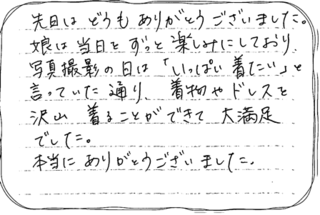 先日は どうも ありがとうございました。
娘は 当日を ずっと 楽しみにしており、
写真撮影の日は「いっぱい 着たい」と
言っていた 通り、着物や ドレスを
沢山 着ることができて 大満足
でした。
本当に ありがとうございました。